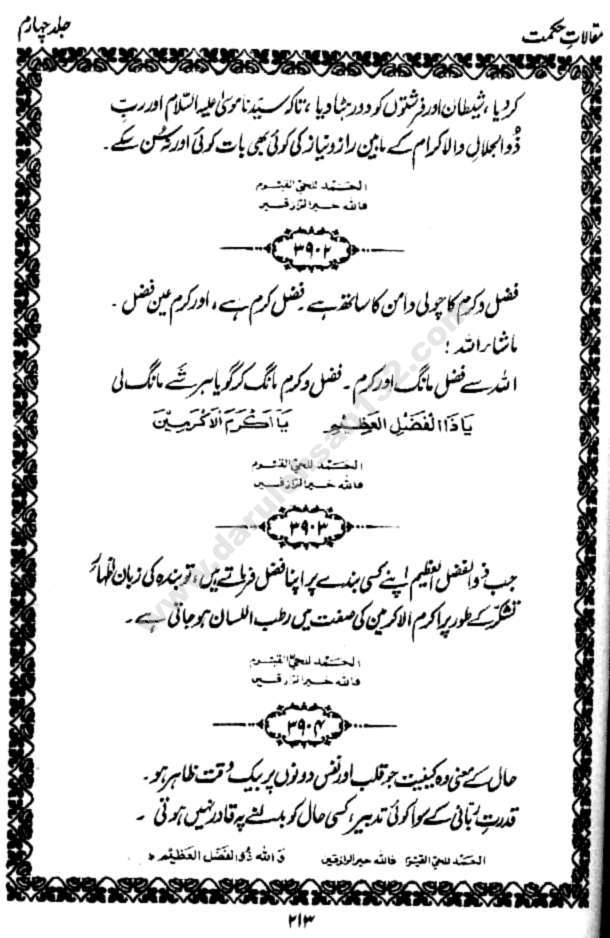 مقالاتِ حکمت
جلد چہارم
کر دیا، شیطان اور فرشتوں کو دور ہٹا دیا، تاکہ سیدنا موسیٰ علیہ السلام اور ربِّ
ذُوالجلال والاکرام کے مابین راز و نیاز کی کوئی بھی بات کوئی اور نہ سُن سکے۔
الحمد للحی القیوم
فاللہ خیر الرازقین
۳۹۰۲
فضل و کرم کا چولی دامن کا ساتھ ہے۔ فضل کرم ہے، اور کرم عین فضل۔
ماشاء اللہ!
اللہ سے فضل مانگ اور کرم۔ فضل و کرم مانگ کر گویا ہر شَے مانگ لی
یَا ذَا الْفَضْلِ الْعَظِیْمِ یَا اَکْرَمَ الْاَکْرَمِیْنَ
الحمد للحی القیوم
فاللہ خیر الرازقین
۳۹۰۳
جب ذوالفضل العظیم اپنے کسی بندے پر اپنا فضل فرماتے ہیں، تو بندہ کی زبان اظہارِ
تشکّر کے طور پر اکرم الاکرمین کی صفت میں رطب اللسان ہو جاتی ہے۔
الحمد للحی القیوم
فاللہ خیر الرازقین
۳۹۰۴
حال کے معنی وہ کیفیت جو قلب اور نفس دونوں پر بیک وقت ظاہر ہو۔
قدرتِ ربّانی کے سوا کوئی تدبیر، کسی حال کو بدلنے پہ قادر نہیں ہوتی۔
الحمد للحی القیوم فاللہ خیر الرازقین واللہ ذُوالفضل العظیم
۲۱۳